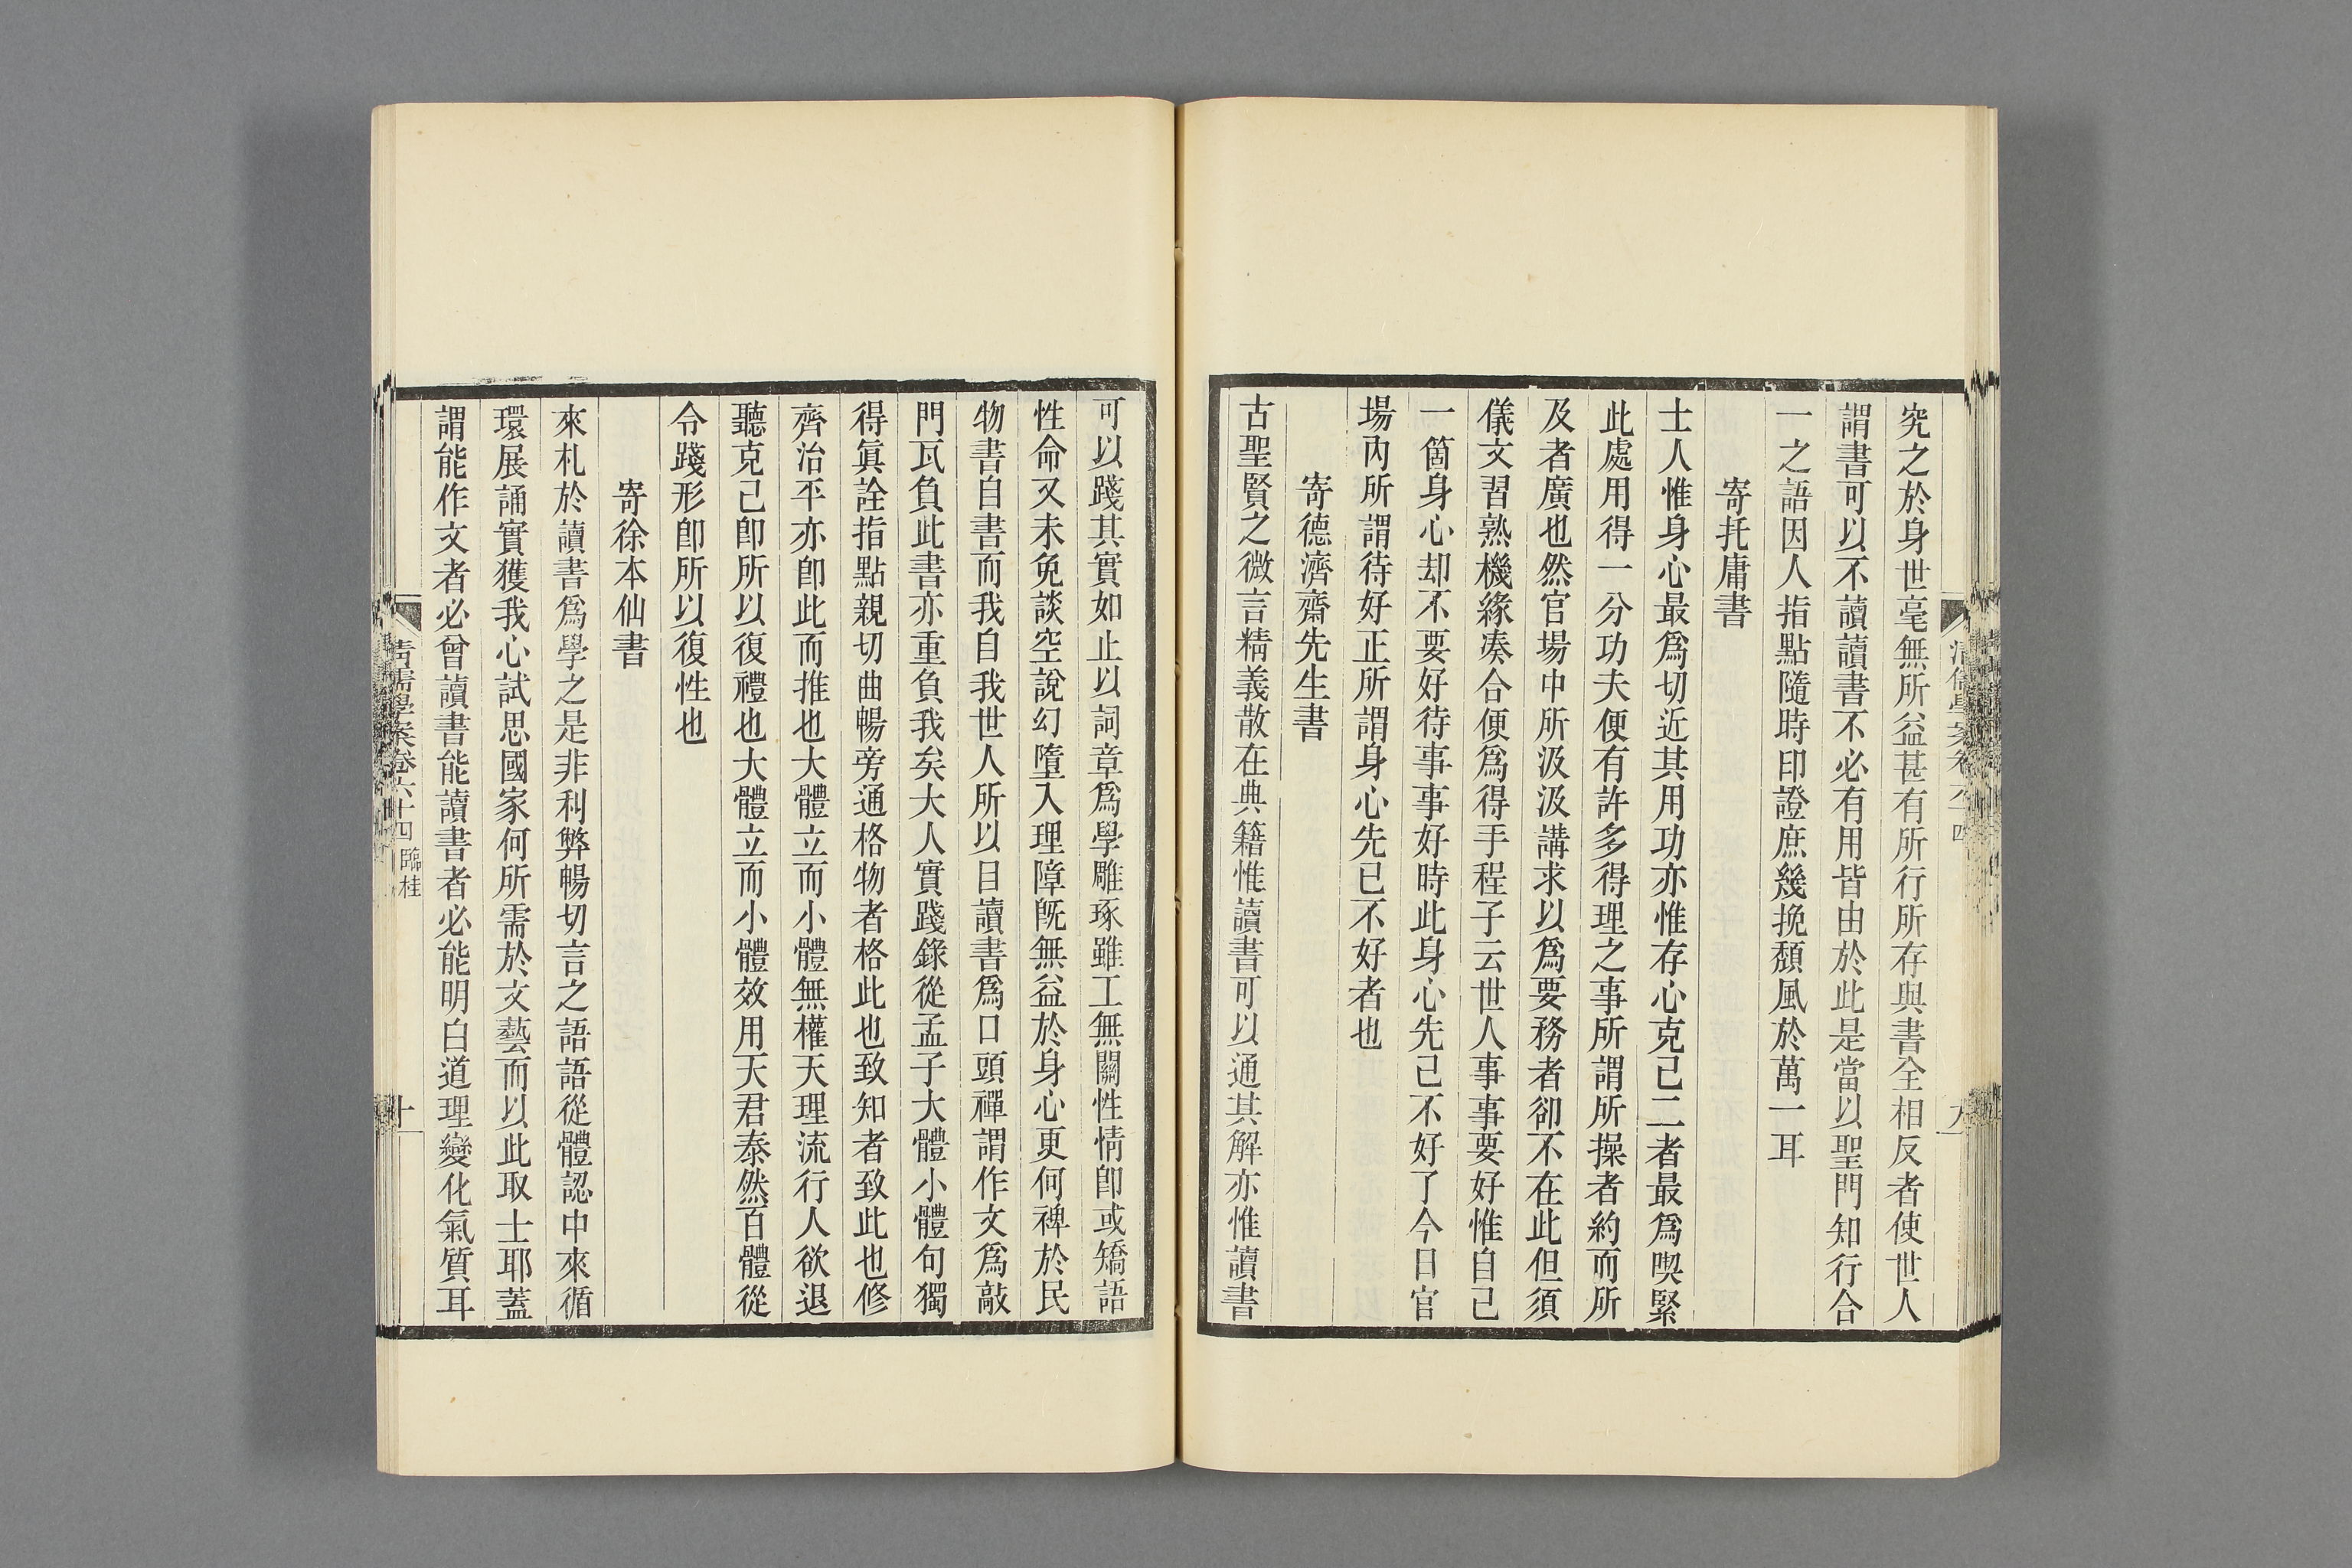 究之於身世毫無所益甚有所行所存與書全相反者使世人
謂書可以不讀讀書不必有用皆由於此是當以聖門知行合
一之語因人指點隨時印證庶幾挽頹風於萬一耳
寄托庸書
士人惟身心最爲切近其用功亦惟存心克己二者最爲喫緊
此處用得一分功夫便有許多得理之事所謂所操者約而所
及者廣也然官場中所汲汲講求以爲要務者卻不在此但須
儀文習熟機緣凑合便爲得手程子云世人事事要好惟自己
一箇身心却不要好待事事好時此身心先己不好了今日官
場內所謂待好正所謂身心先已不好者也
寄德濟齋先生書
古聖賢之微言精義散在典籍惟讀書可以通其解亦惟讀書
可以踐其實如止以詞章爲學雕琢雖工無關性情卽或矯語
性命又未免談空說幻墮入理障旣無益於身心更何裨於民
物書自書而我自我世人所以目讀書爲口頭禪謂作文爲敲
門瓦負此書亦重負我矣大人實踐錄從孟子大體小體句獨
得眞詮指點親切曲暢旁通格物者格此也致知者致此也修
齊治平亦卽此而推也大體立而小體無權天理流行人欲退
聽克己卽所以復禮也大體立而小體效用天君泰然百體從
令踐形卽所以復性也
寄徐本仙書
來札於讀書爲學之是非利弊暢切言之語語從體認中來循
環展誦實獲我心試思國家何所需於文藝而以此取士耶蓋
謂能作文者必曾讀書能讀書者必能明白道理變化氣質耳
清儒學案卷六十四 臨桂
十